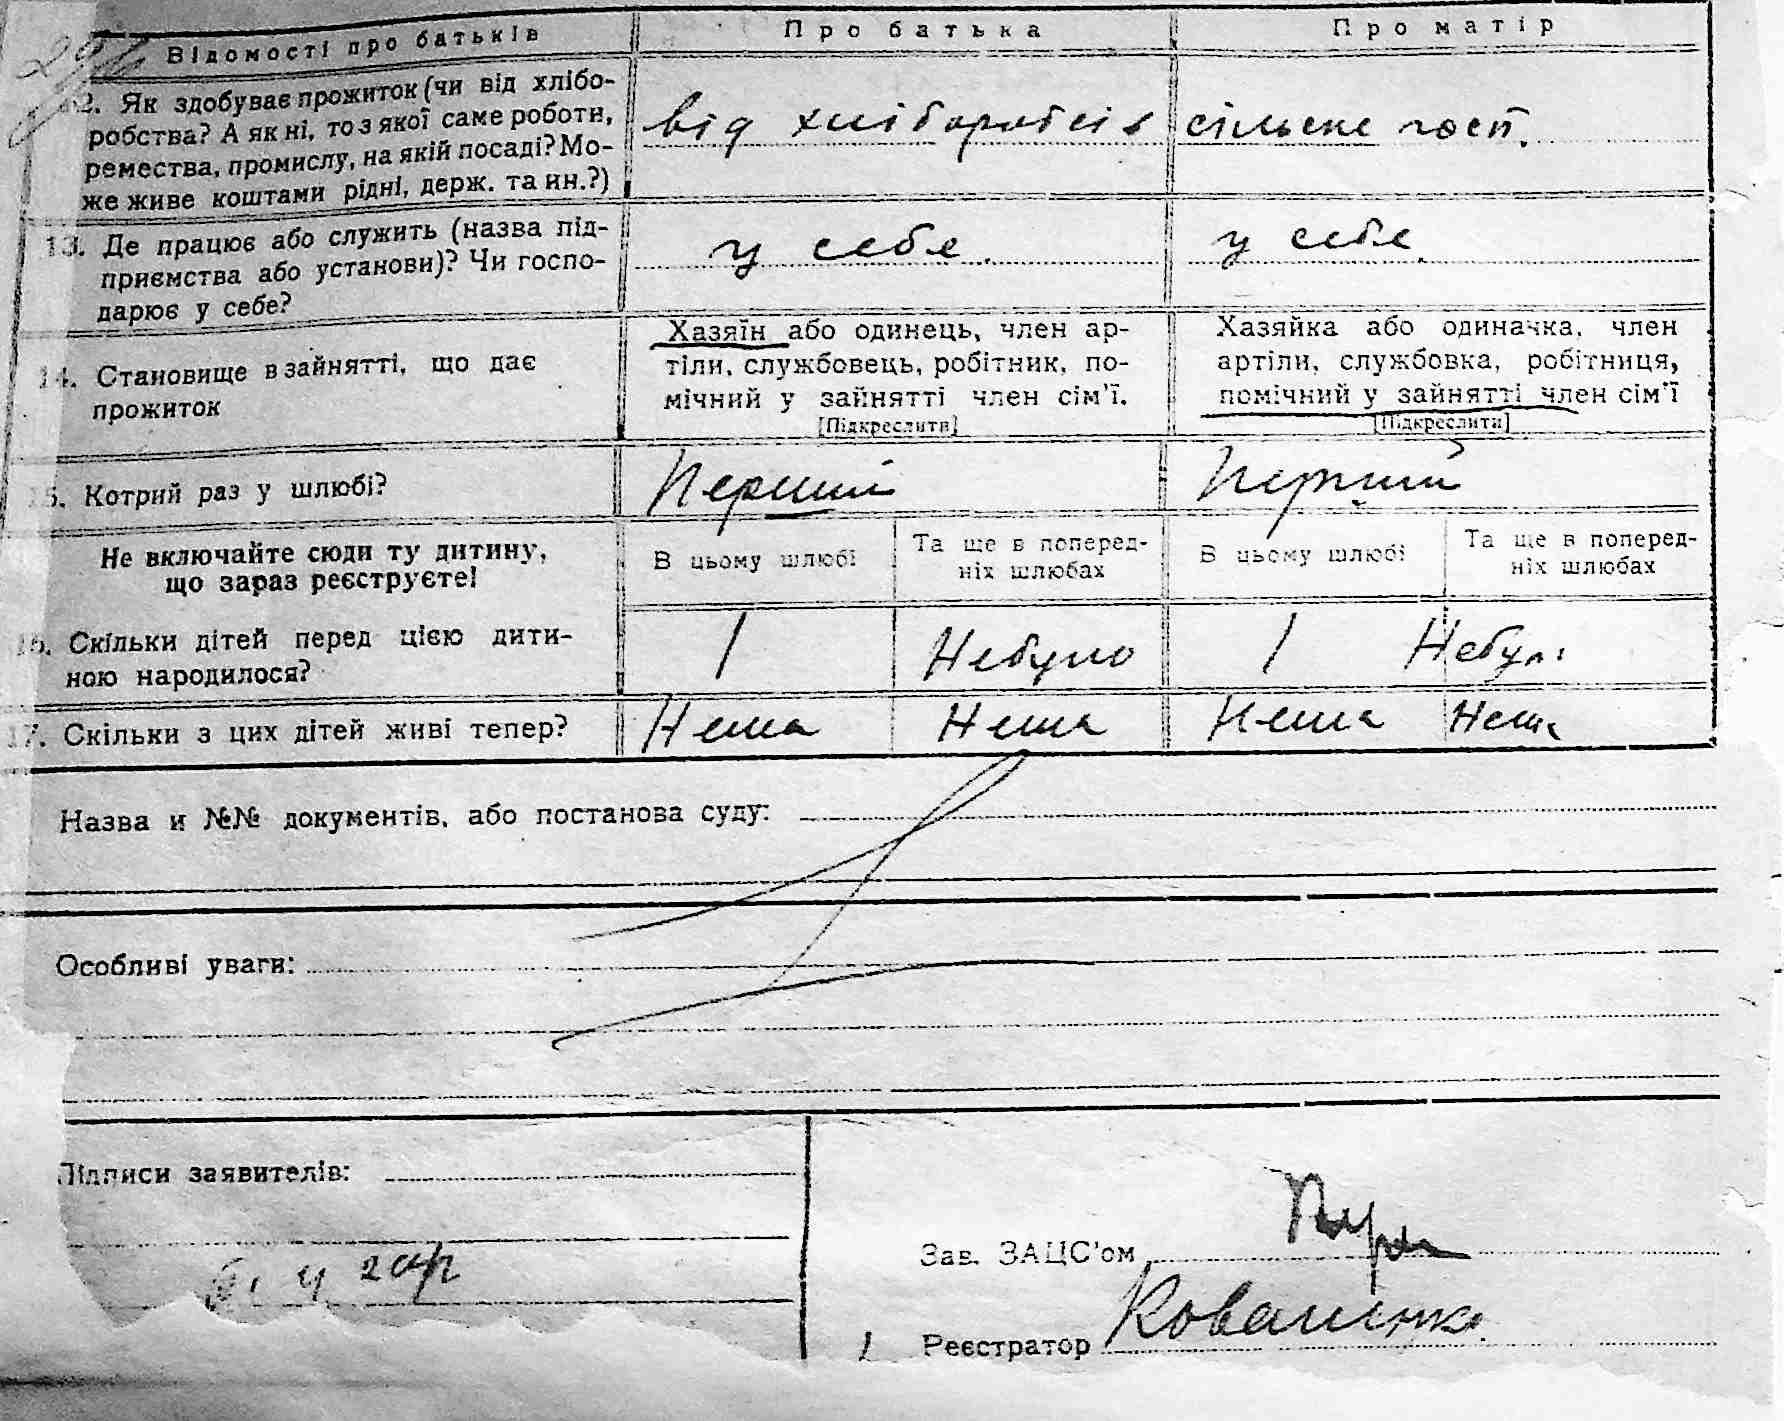 Відомості про батьків Про батька Про матір
2. Як здобуває прожиток (чи від хлібо-
робства? А як ні, то з якої саме роботи,
ремества, промислу, на якій посаді? Мо-
же живе коштами рідні, держ. та ин.?)
від сільське госп.
13. Де працює або служить (назва під-
приємства або установи)? Чи госпо-
дарює у себе?
у себе у себе
14. Становище в зайнятті, що дає
прожиток
Хазяїн або одинець, член ар-
тіли, службовець, робітник, по-
мічний у зайнятті член сім'ї.
[Підкреслити]
Хазяйка або одиначка, член
артіли, службовка, робітниця,
помічний у зайнятті член сім'ї
[Підкреслити]
15. Котрий раз у шлюбі? Перший Перший
Не включайте сюди ту дитину,
що зараз реєструєте!
В цьому шлюбі
Та ще в поперед-
ніх шлюбах
В цьому шлюбі
Та ще в поперед-
ніх шлюбах
16. Скільки дітей перед цією дити-
ною народилося?
1 Небуло 1
17. Скільки з цих дітей живі тепер? Нема Нема Нема Нема
Назва и №№ документів, або постанова суду:
Особливі уваги:
Підписи заявителів:
Зав. ЗАЦС'ом
Реєстратор Коваленко